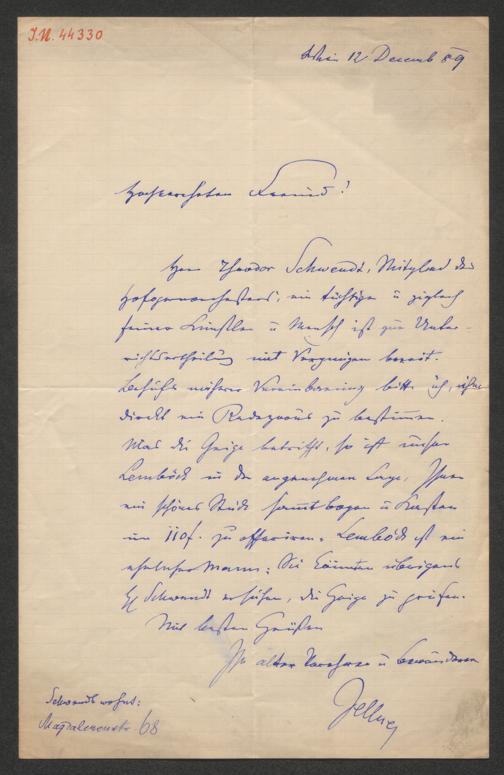 I.N. 44330
Wien 12 Decemb 89
Hochverehrter Freund!
Herr Theodor Schwendt, Mitglied des
Hofopernorchesters, ein tüchtiger u zugleich
feiner Künstler u Mensch ist zur Unter-
richtsertheilung mit Vergnügen bereit.
Behufs näherer Vereinbarung bitte ich, ihm
direkt ein Rendezvous zu bestimmen.
Was die Geige betrifft, so ist unser
Lemböck in der angenehmen Lage, Ihnen
ein schönes Stück sammt bogen u Kasten
um 110f. zu offeriren. Lemböck ist ein
ehrlicher Mann; Sie könnten übrigens
H Schwendt ersuchen, die Geige zu prüfen.
Mit besten Grüßen
Ihr alter Verehrer u bewunderer
Zellner
Schwendt wohnt:
Magdalenenstr 68